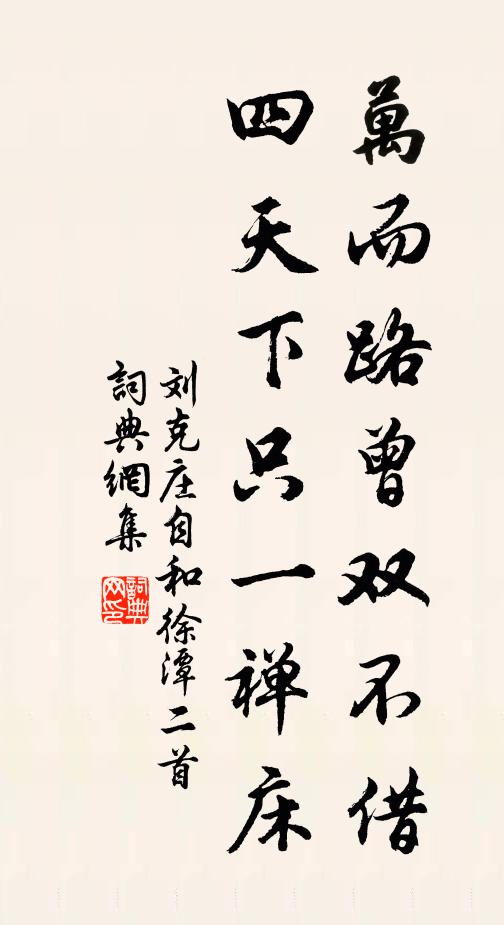 萬而路曾双不借
四天下只一禅床
刘克庄自和徐潭二首
詞典網集
詞典网印